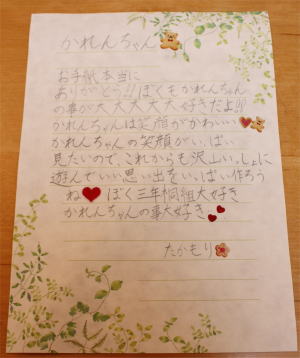 かれんちゃん
お手紙本当に
ありがとう!!ぼくもかれんちゃん
の事が大大大大大好きだよ!!
かれんちゃんは笑顔がかわいい
かれんちゃんの笑顔がいっぱい
見たいので、これからも沢山いっしょに
遊んでいい思い出をいっぱい作ろう
ね ぼく三年桐組大好き
かれんちゃんの事大好き
たかもり